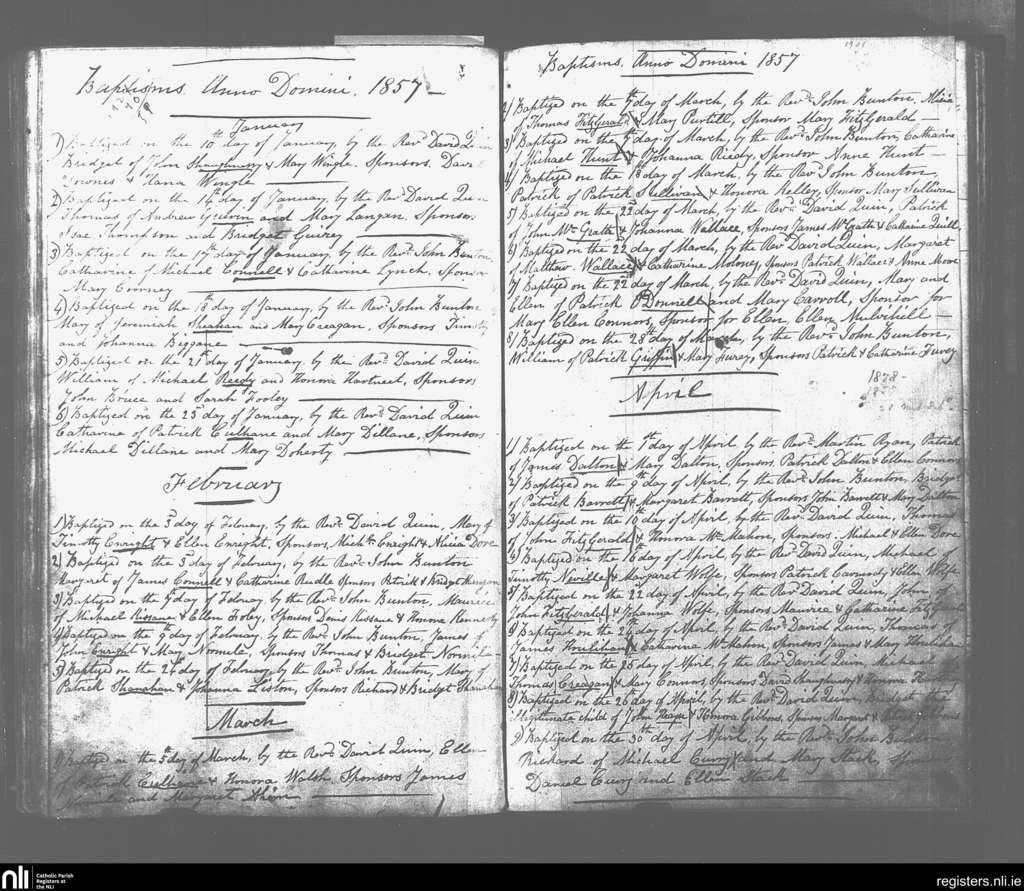 Baptisms. Anno Domini. 1857
January
1) Baptized on the 10th day of January, by the Revd David Quin
Bridget of John Shaughnessy & Mary Wingle. Sponsors. David
Downes & Hana Wingle
2) Baptized on the 14th day of January, by the Revd David Quin
Thomas of Andrew and Mary Langan, Sponsors
Isac Thompson and Bridget Guirey
3) Baptized on the 17th day of January, by the Revd John Bunton,
Catharine of Michael Connell & Catharine Lynch. Sponsor
Mary Coonney
4) Baptized on the 18th day of January, by the Revd John Bunton
Mary of Jeremiah Sheahan and Mary Creagan, Sponsors Timothy
and Johanna Biggane
5) Baptized on the 21st day of January, by the Revd David Quin
William of Michael Reedy and Honora Hartnett, Sponsors
John Bruce and Sarah Hooley
6) Baptized on the 23d day of January, by the Revd David Quin
Catharine of Patrick Culhane and Mary Dillane, Sponsors
Michael Dillane and Mary Doherty
February
1) Baptized on the 3d day of February, by the Revd David Quin, Mary of
Timothy Enright & Ellen Enright, Sponsors, Enright & Alicia Dore
2) Baptized on the 5th day of February, by the Revd John Bunton
Margaret of James Connell & Catharine Sponsors Patrick & Bridget Mangan
3) Baptized on the 9th day of February by the Revd John Bunton, Maurice
of Michael Kissane & Ellen Foley, Sponsors Denis Kissane & Honora Kennedy
4) Baptized on the 9 day of February, by the Revd John Bunton, James of
John Enright & Mary Normile, Sponsors Thomas & Bridget Normile
5) Baptized on the 24th day of February, by the Revd John Bunton, Mary of
Patrick Shanahan & Johanna Liston, Sponsors Richard & Bridget Shanahan
March
1) Baptized on the 5th day of March, by the Revd David Quin, Ellen
of Patrick Culhane & Honora Walsh, Sponsors James
and Margaret Ahern
Baptisms. Anno Domini 1857
2) Baptized on the 7th day of March, by the Revd John Bunton, Alicia
of Thomas FitzGerald & Mary Purtill, Sponsor Mary FitzGerald
3) Baptized on the day of March, by the Revd John Bunton, Catharine
of Michael Hunt & Johanna Riedy, Sponsor Anne Hunt
4) Baptized on the 18th day of March, by the Revd John Bunton,
Patrick of Patrick Sullivan & Honora Kelley, Sponsor Mary Sullivan
5) Baptized on the 22d day of March, by the Revd David Quin, Patrick
of John McGrath & Johanna Wallace, Sponsors James McGrath & Catharine Quill
6) Baptized on the 22 day of March, by the Revd David Quin, Margaret
of Matthew Wallace & Catharine Moloney, Sponsors Patrick Wallace & Anne Moore
7) Baptized on the 22d day of March, by the Revd David Quin, Mary and
Ellen of Patrick O'Donnell and Mary Carroll, Sponsor for
Mary Ellen Connors, Sponsor for Ellen, Ellen Mulvihill
8) Baptized on the 28th day of March, by the Revd John Bunton,
William of Patrick Griffin & Mary Furey, Sponsors Patrick & Catharine Furey
1878
April
1) Baptized on the 7th day of April, by the Revd Martin Ryan, Patrick
of James Dalton & Mary Dalton, Sponsors, Patrick Dalton & Ellen Connors
2) Baptized on the 9th day of April, by the Revd John Bunton, Bridget
of Patrick Barrett & Margaret Barrett, Sponsors John Barrett & Mary Dalton
3) Baptized on the 10th day of April, by the Revd David Quin, Thomas
of John FitzGerald & Honora McMahon, Sponsors. Michael & Ellen Dore
4) Baptized on the 16th day of April, by the Revd David Quin, Michael
Timothy Neville & Margaret Wolfe, Sponsors Patrick Carmody & Ellen Wolfe
5) Baptized on the 22 day of April, by the Revd David Quin, John of
John Fitzgerald & Johanna Wolfe, Sponsors Maurice & Catharine FitzGerald
6) Baptized on the 24th day of April, by the Revd David Quin, Thomas of
James Houlihan & Catharine McMahon, Sponsors James & Mary Houlihan
7) Baptized on the 25 day of April, by the Revd David Quin, Michael
Thomas Creagan & Mary Connors, Sponsors David Shaughnessy & Honora
8) Baptized on the 26 day of April, by the Revd David Quin, Bridget the
illigitimate child of John & Honora Gibbons, Sponsors Margaret &
9) Baptized on the 30th day of April, by the Revd John Bunton
Richard of Michael Curry and Mary Stack, Sponsors
Daniel Curry and Ellen Stack
nli Catholic Parish
Registers at
the NLI
registers.nli.ie